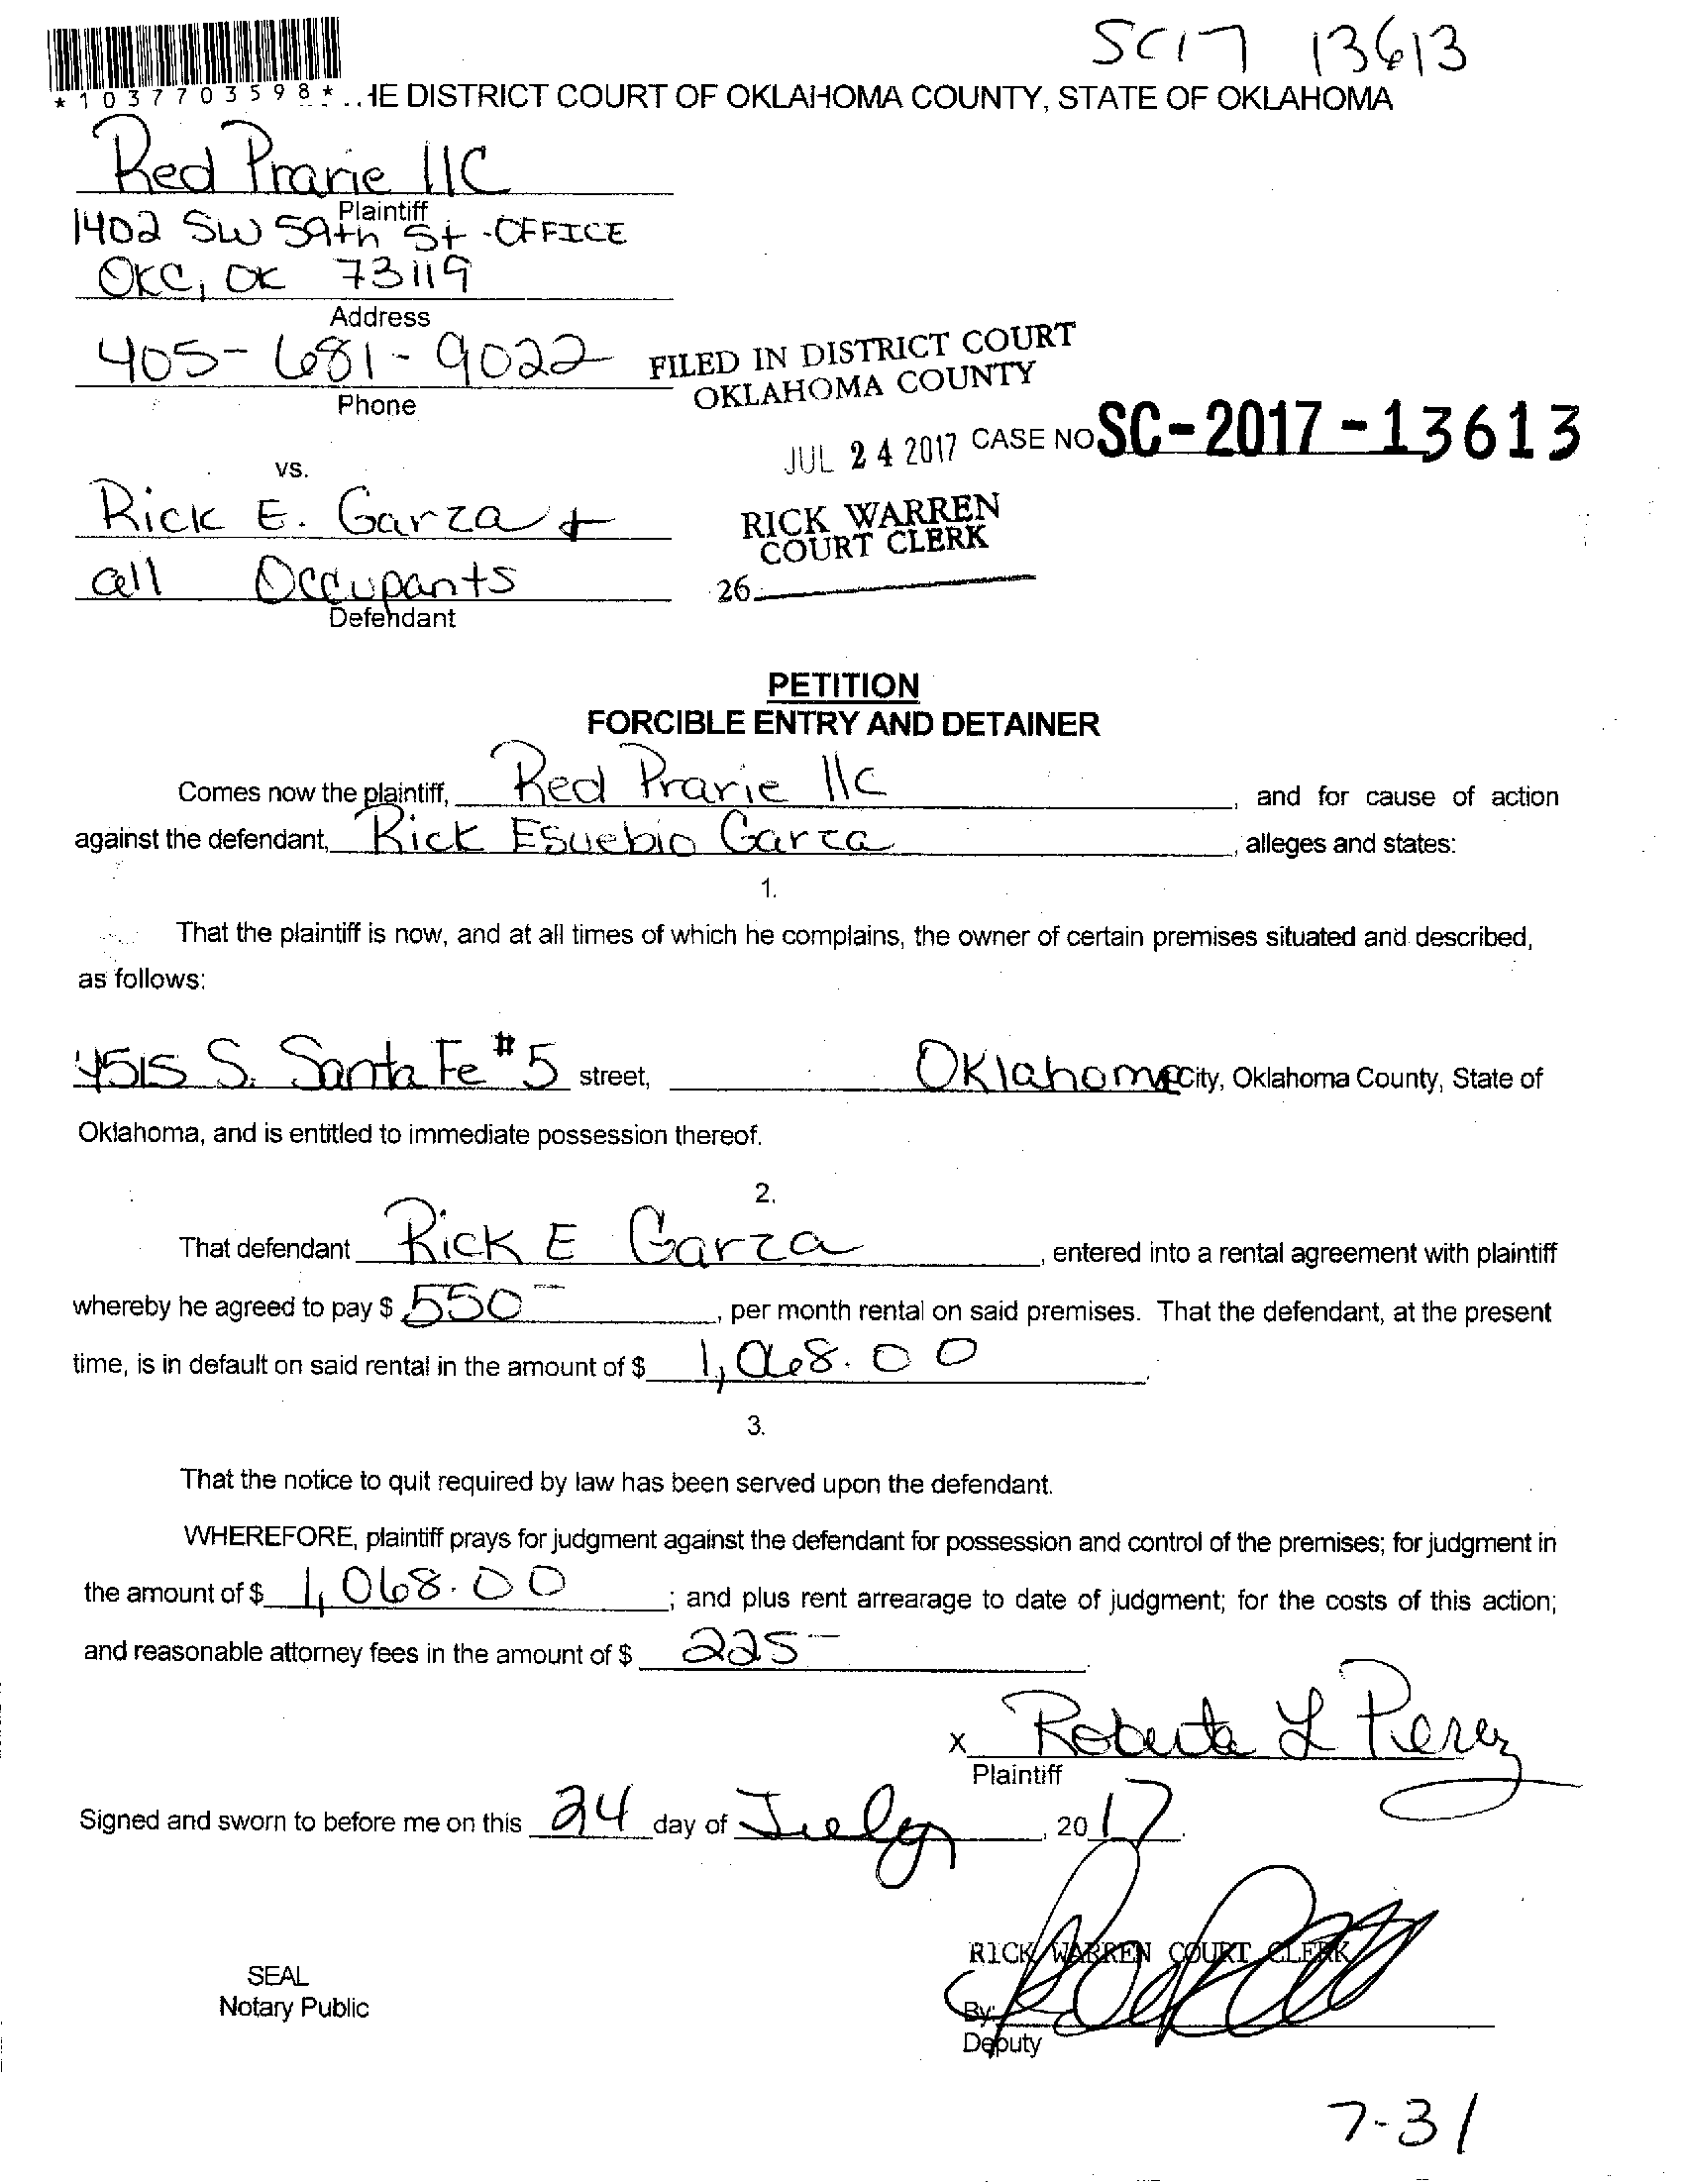 SC17 13613
*1037703598*..HE DISTRICT COURT OF OKLAHOMA COUNTY, STATE OF OKLAHOMA
Red Prarie llC
Plaintiff
1402 SW 59th St - OFFICE
OKC, OK 73119
Address
405-681-9022
Phone
FILED IN DISTRICT COURT
OKLAHOMA COUNTY
JUL 24 2017 CASE NO SC-2017-13613
vs.
Rick E. Garza +
all Occupants
Defendant
RICK WARREN
COURT CLERK
26
PETITION
FORCIBLE ENTRY AND DETAINER
Comes now the plaintiff, Red Prarie llc, and for cause of action
against the defendant, Rick Esuebio Garza, alleges and states:
1.
That the plaintiff is now, and at all times of which he complains, the owner of certain premises situated and described,
as follows:
4515 S. Santa Fe #5 street, Oklahoma City, Oklahoma County, State of
Oklahoma, and is entitled to immediate possession thereof.
2.
That defendant Rick E Garza, entered into a rental agreement with plaintiff
whereby he agreed to pay $ 550-, per month rental on said premises. That the defendant, at the present
time, is in default on said rental in the amount of $ 1,068.00.
3.
That the notice to quit required by law has been served upon the defendant.
WHEREFORE, plaintiff prays for judgment against the defendant for possession and control of the premises; for judgment in
the amount of $ 1,068.00; and plus rent arrearage to date of judgment; for the costs of this action;
and reasonable attorney fees in the amount of $ 225-.
X Roberta L Perez
Plaintiff
Signed and sworn to before me on this 24 day of July, 2017.
RICK WARREN COURT CLERK
SEAL
Notary Public
By:
Deputy
7-31